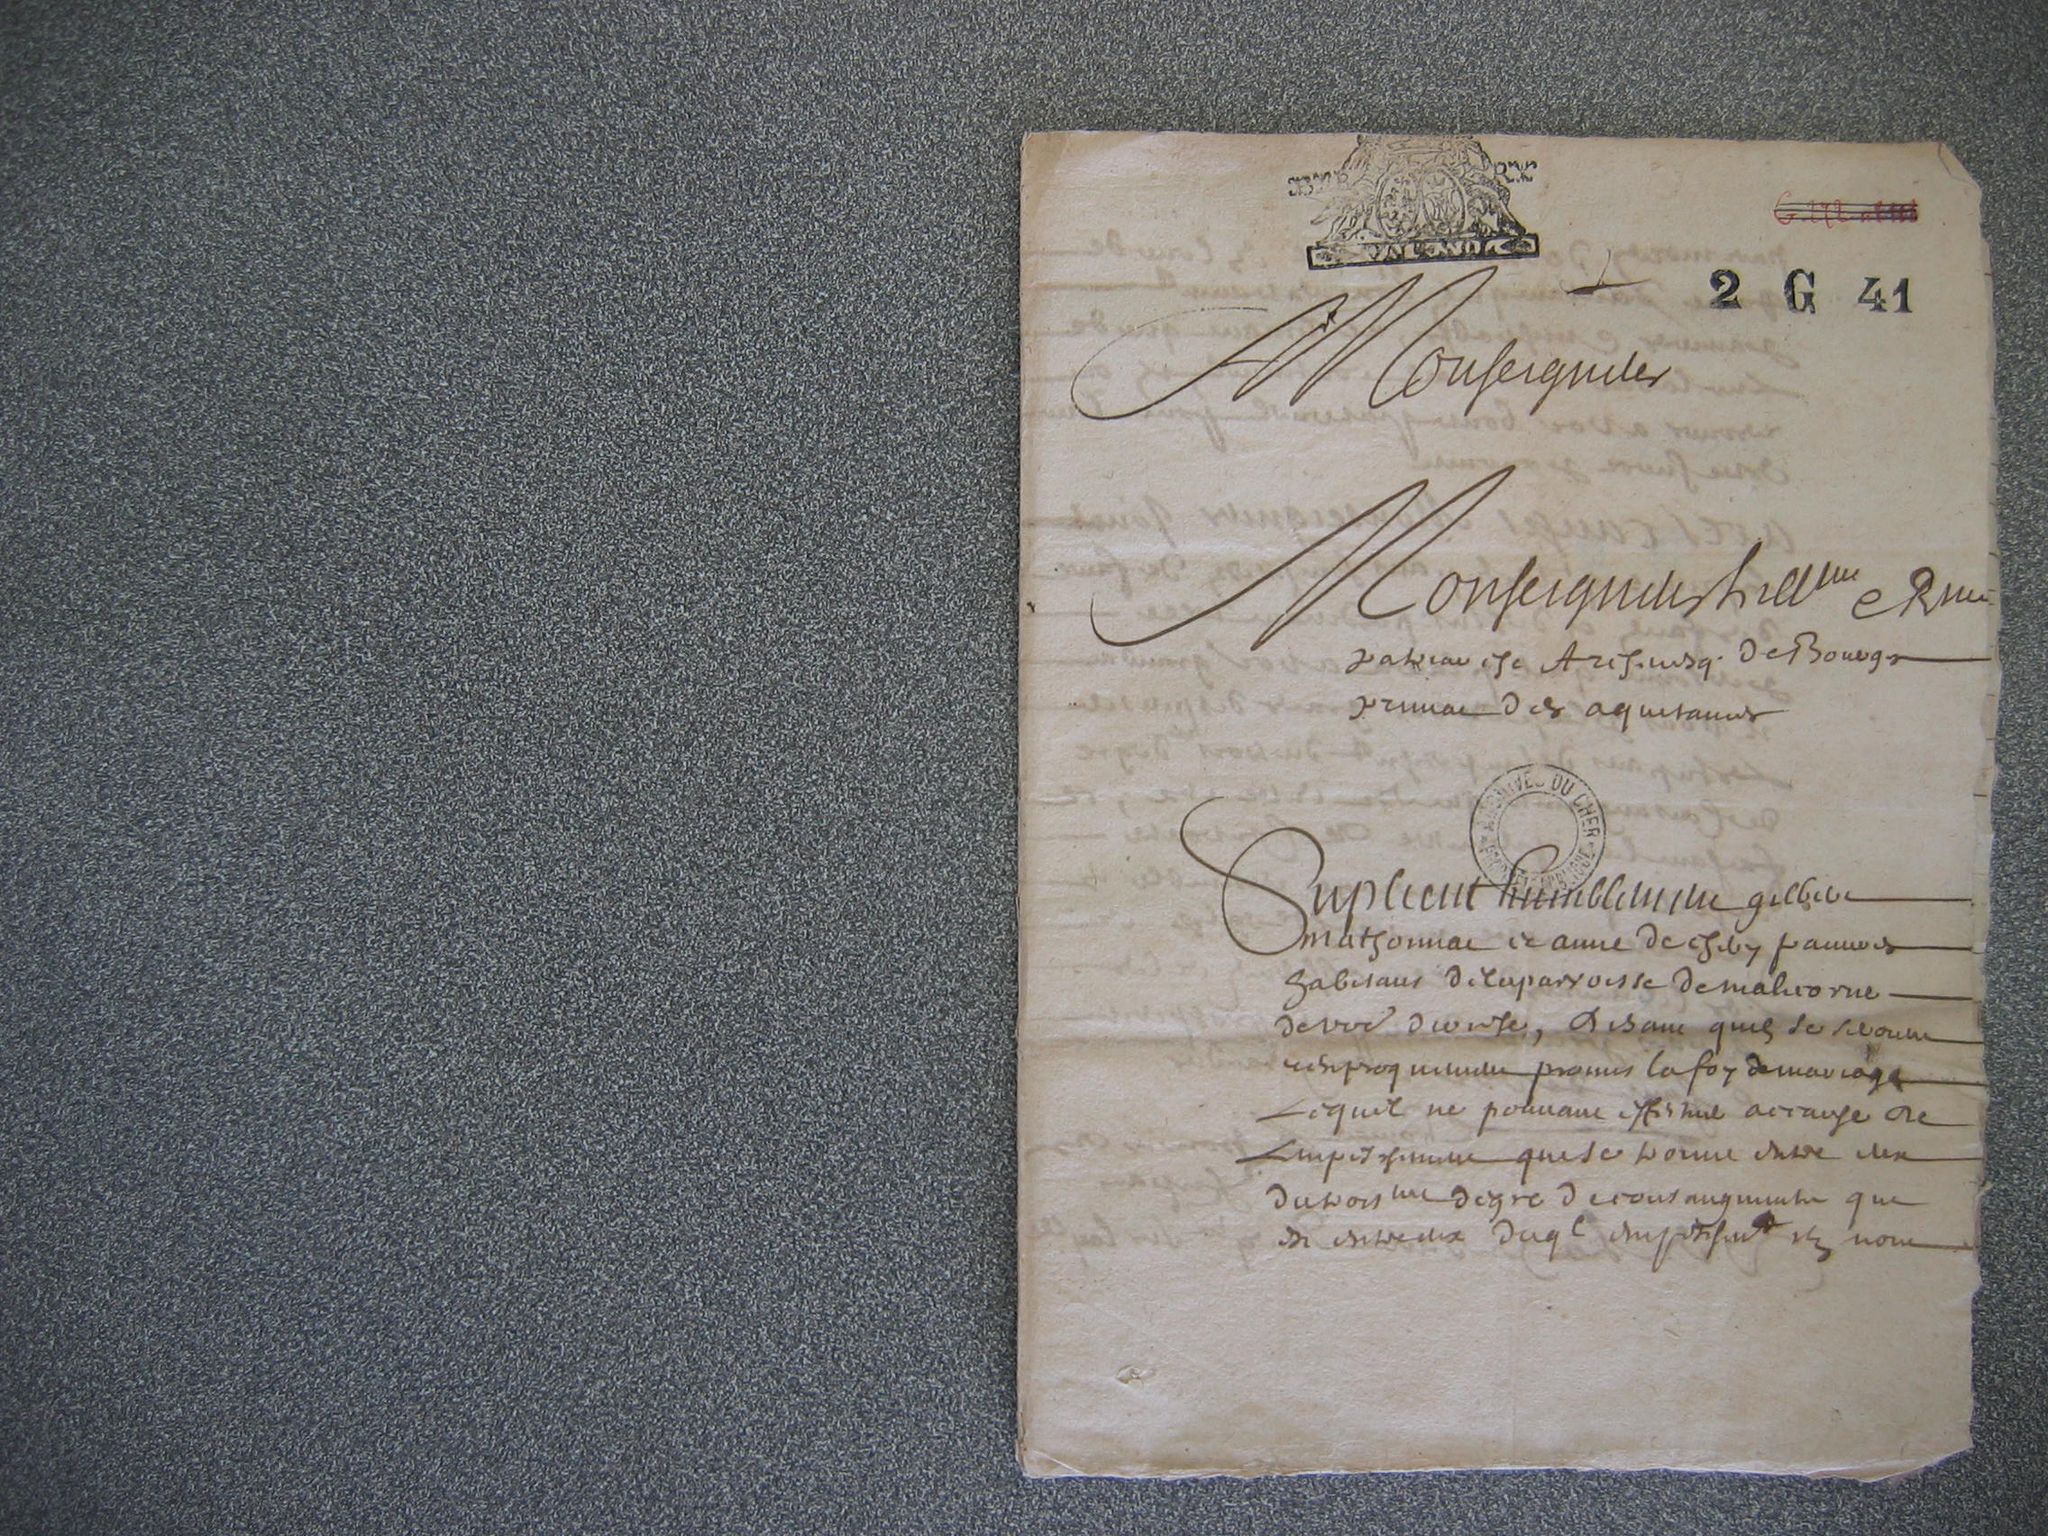 2 G 41
Monseigneur
Monseigneur Lillme et Rme
patriarche Archevesq. de Bourges
primac des aquitanies
ARCHIVES DU CHER
Suplient humblement gilbert
mathonnac et anne de chery pauvres
habitans de la parroisse de malicorne
de vre diocese, disant quils se seroient
reciproquement promis la foy de mariage
Lequel ne pouvant effectuer a cause de
Lempeschement que se trouve entre eux
du troisme degre de consanguinite que
est entre eux duql empeschemt ilz nont